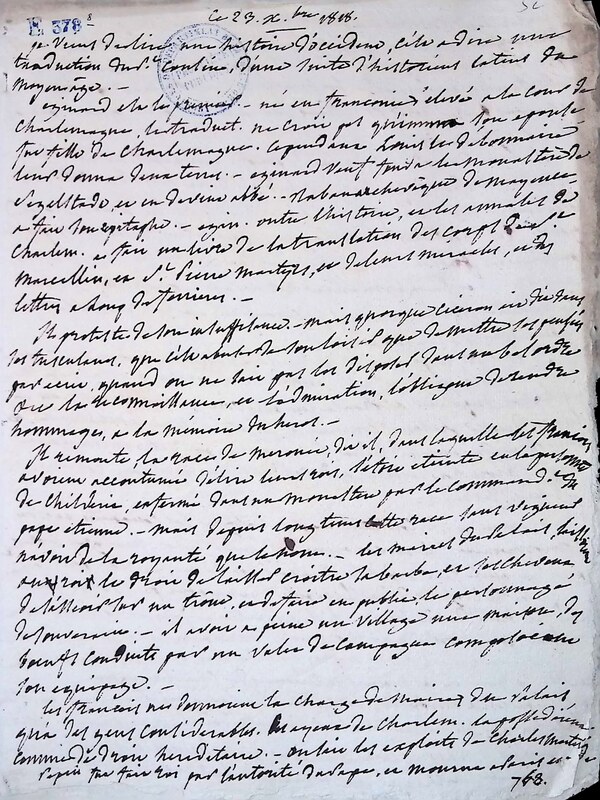 E 378 8
Ce 23. X.bre 1818.
je viens de lire une histoire d'occident, c'est a dire une
traduction du p. Cousin, d'une suite d'historiens latins du
moyen age. —
eginard est le premier — né en franconie élevé a la cour de
Charlemagne, le traduct. ne croit pas qu'imma son epouse
fut fille de Charlemagne. Cependant Louis le debonnaire
leur donna deux terres. — eginard veuf fonda le monastère de
Selgestade, et en devint abbé. — Raban archevêque de mayence
a fait son epitaphe. — egin. outre l'histoire, et les annales de
Charlem. a fait un livre de la translation des corps de St
Marcellin, et St Pierre martyrs, et de leurs miracles, et des
lettres a Loup de ferrieres. —
Il proteste de son insuffisance. — mais quoique ciceron ait dit dans
ses tusculanes, que c'est abuser de son loisir que de mettre ses pensées
par ecrit, quand on ne sait pas les disposer dans un bel ordre
la reconnaissance, et l'admiration, l'obligent de rendre
hommage, a la mémoire du heros. —
Il remonte, la race de meroüée, dit il, dans laquelle les français
avoient accoutumé d'elire leurs rois, s'est eteinte en la personne
de Childeric, enfermé dans un monastère par le command. du
pape etienne. — mais depuis longtems cette race sans vigueur
n'avoit de la royauté que le nom. — les maires du palais laissoient
aux rois le droit de laisser croitre la barbe, et les cheveux
de s'asseoir sur un trone, et de faire en public le personnage
de souverain. — il avoit a peine un village une maison, des
boeufs conduits par un valet de campagne composoient
son equipage. —
les français ne donnoient la charge de maires du palais
qu'a des gens considerables. les ayeux de Charlem. la possedoient
comme de droit hereditaire. — on sait les exploits de Charles Martel
Pepin fut fait roi par l'autorité du Pape, et mourut a Paris en
768.